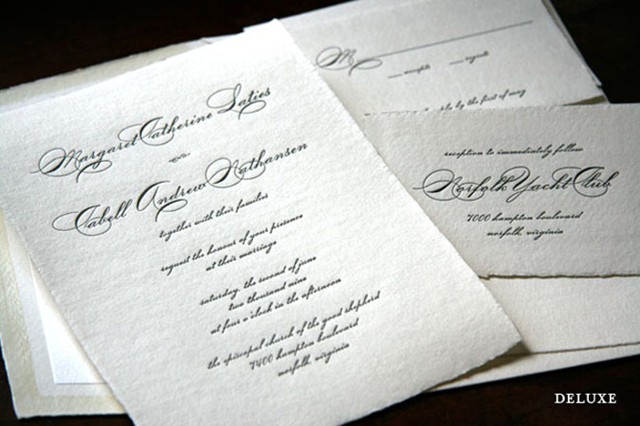 Margaret Catherine Laties
Cabell Andrew Nathansen
together with their families
request the honour of your presence
at their marriage
saturday, the second of june
two thousand nine
at four o'clock in the afternoon
the episcopal church of the good shepherd
7400 hampton boulevard
norfolk, virginia
M
accepts
regrets
by the first of may
reception to immediately follow
Norfolk Yacht Club
7000 hampton boulevard
norfolk, virginia
DELUXE